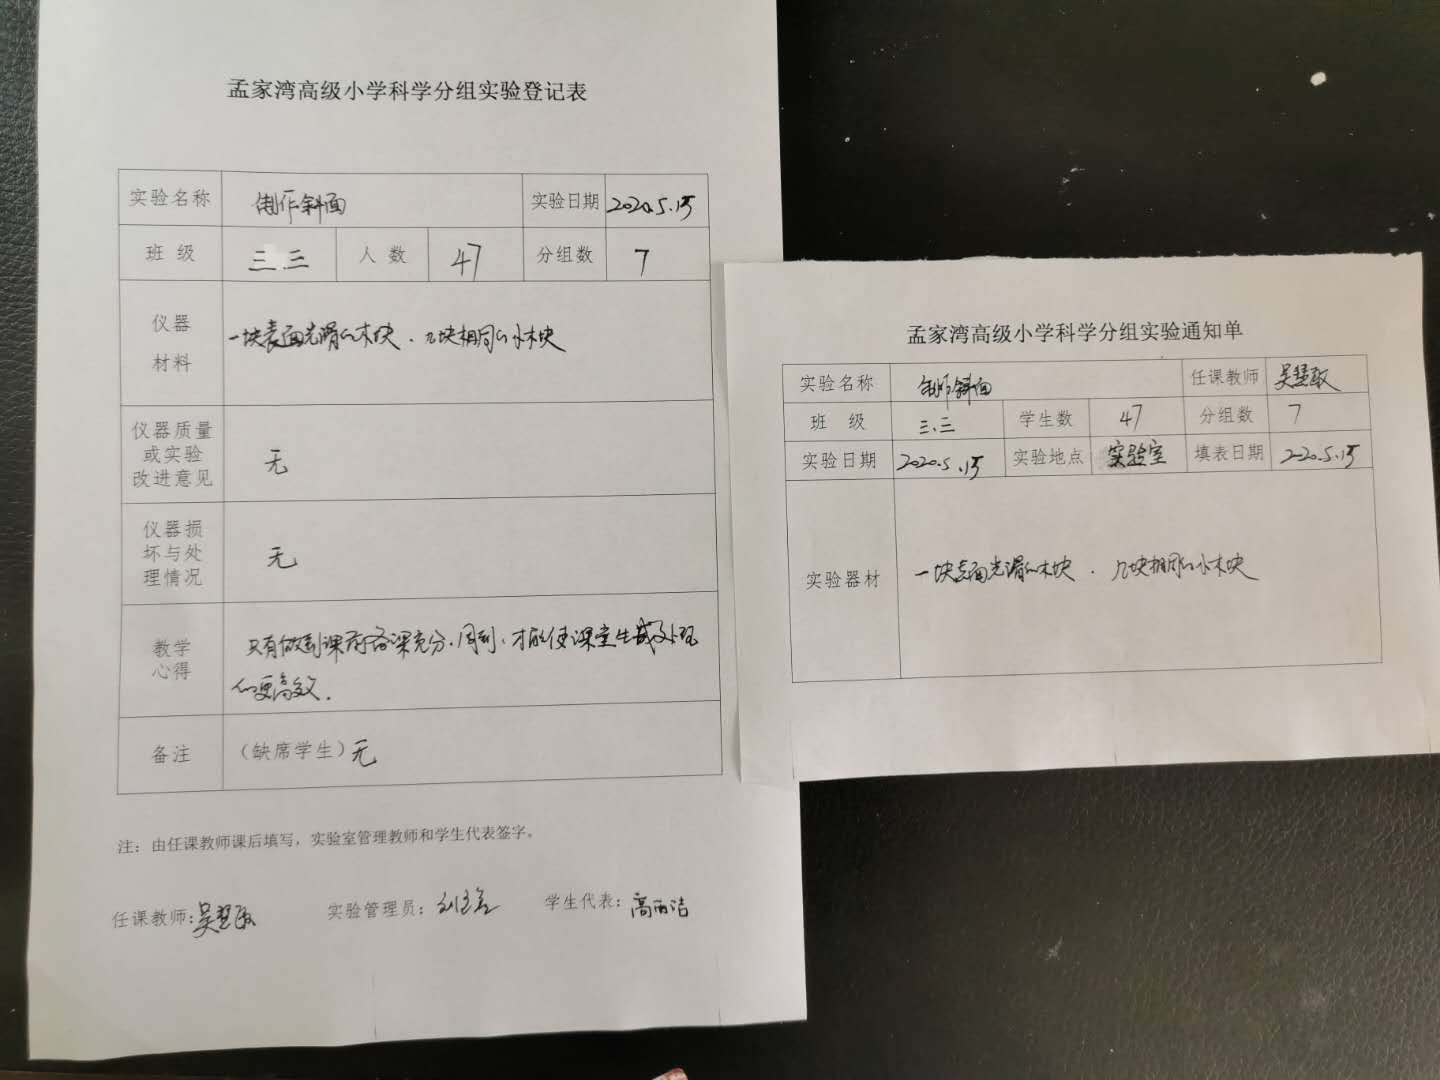 孟家湾高级小学科学分组实验登记表
实验名称 制作斜面 实验日期 2020.5.15
班 级 三.三 人 数 47 分组数 7
仪器
材料
一块表面光滑的木块、几块相同的小木块
仪器质量
或实验
改进意见
无
仪器损
坏与处
理情况
无
教学
心得
只有做到课前备课充分、周到、才能使课堂生成处理
的更高效.
备注 (缺席学生) 无
注：由任课教师课后填写，实验室管理教师和学生代表签字。
任课教师:吴慧敏 实验管理员: 学生代表:高丽洁
孟家湾高级小学科学分组实验通知单
实验名称 制作斜面 任课教师 吴慧敏
班 级 三.三 学生数 47 分组数 7
实验日期 2020.5.15 实验地点 实验室 填表日期 2020.5.15
实验器材 一块表面光滑的木块、几块相同的小木块